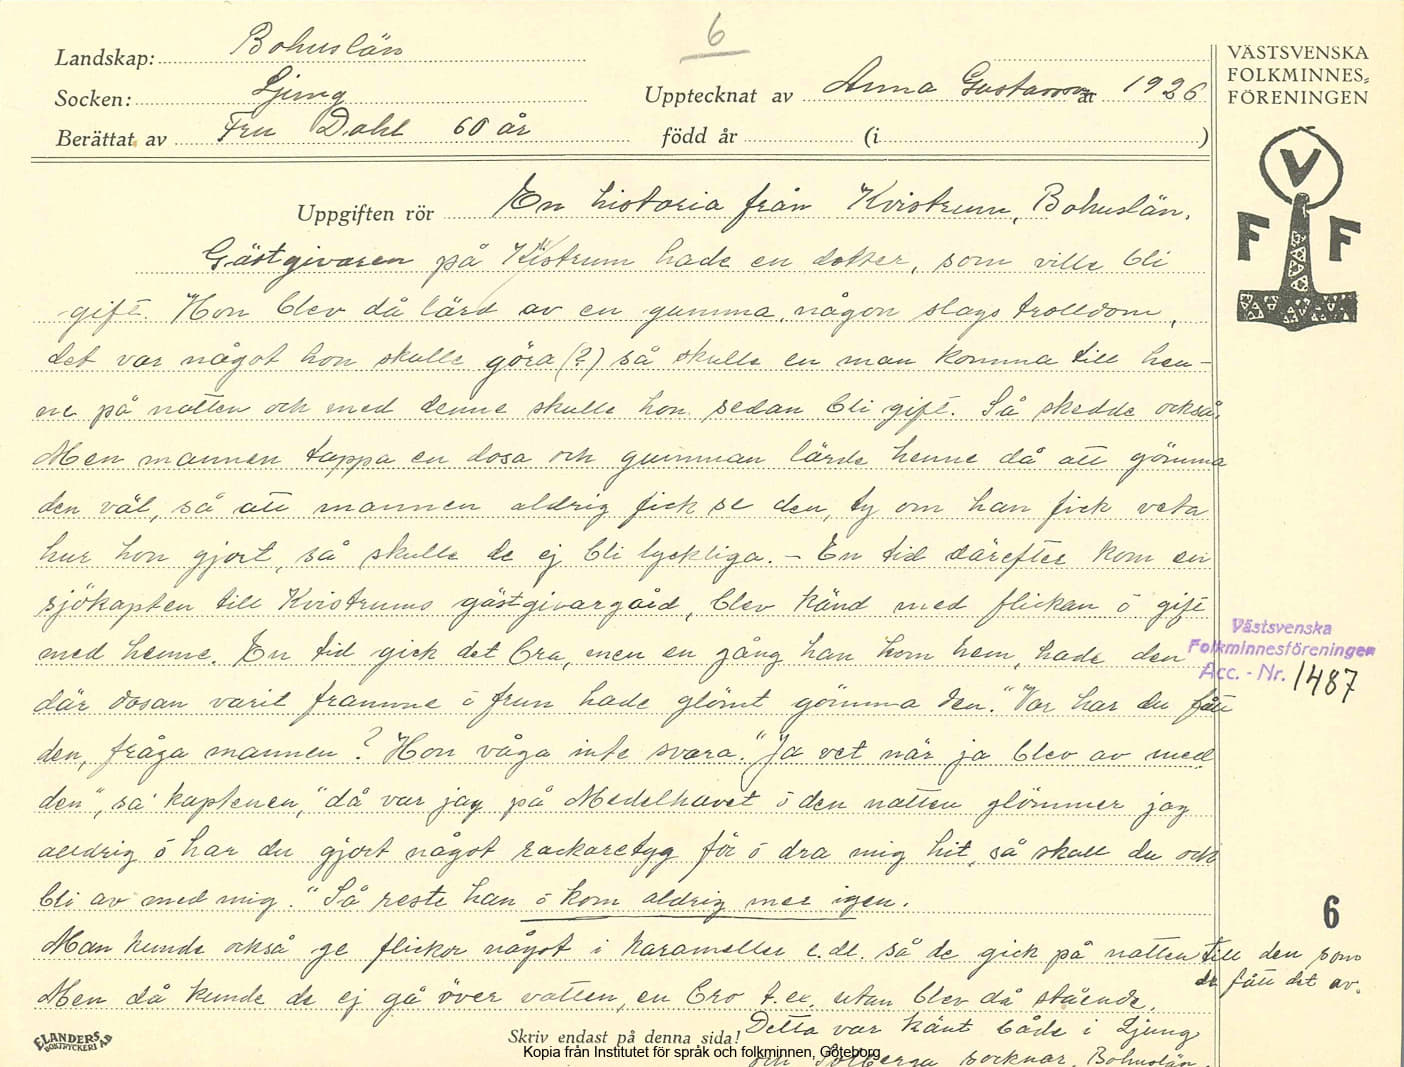 6
Landskap: Bohuslän
Socken: Ljung
Upptecknat av Anna Gustavsson år 1926
Berättat av Fru Dahl 60 år
född år (i )
VÄSTSVENSKA
FOLKMINNES-
FÖRENINGEN
V
F F
Uppgiften rör En historia från Kvistrum, Bohuslän.
Gästgivaren på Kvistrum hade en dotter, som ville bli
gift. Hon blev då lärd av en gumma, någon slags trolldom,
det var något hon skulle göra (?) så skulle en man komma till hen-
ne på natten och med denne skulle hon sedan bli gift. Så skedde också.
Men mannen tappa en dosa och gumman lärde henne då att gömma
den väl, så att mannen aldrig fick se den, ty om han fick veta
hur hon gjort, så skulle de ej bli lyckliga. – En tid därefter kom en
sjökapten till Kvistrums gästgivargård, blev känd med flickan ö gift
med henne. En tid gick det bra, men en gång han kom hem, hade den
där dosan varit framme ö frun hade glömt gömma den. "Var har du fått
den, fråga mannen? Hon våga inte svara. "Ja vet när ja blev av med
den", sa kaptenen, "då var jag på Medelhavet ö den natten glömmer jag
alldrig ö har du gjort något rackaretyg för ö dra mig hit, så skall du och
bli av med mig." Så reste han ö kom aldrig mer igen.
Man kunde också ge flickor något i karameller e.dl. så de gick på natten till den som
de fått det av.
Men då kunde de ej gå över vatten, en bro t.ex. utan blev då stående.
Detta var känt både i Ljung
och socknar, Bohuslän.
Västsvenska
Folkminnesföreningen
Acc. - Nr. 1487
6
ELANDERS
BOKTRYCKERI AB
Skriv endast på denna sida!
Kopia från Institutet för språk och folkminnen, Göteborg